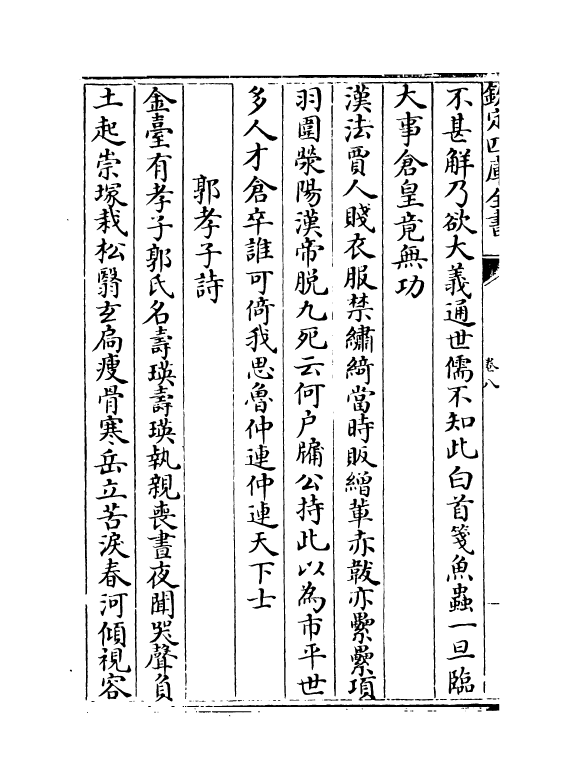 欽定四庫全書
卷八
不甚解乃欲大義通世儒不知此白首箋魚蟲一旦臨
大事倉皇竟無功
漢法賈人賤衣服禁繡綺當時販繒輩亦韍亦纍纍項
羽圍滎陽漢帝脱九死云何户牖公持此以為市平世
多人才倉卒誰可倚我思魯仲連仲連天下士
郭孝子詩
金臺有孝子郭氏名壽瑛壽瑛執親喪晝夜聞哭聲負
土起崇塚栽松翳玄扃瘦骨寒岳立苦淚春河傾視容